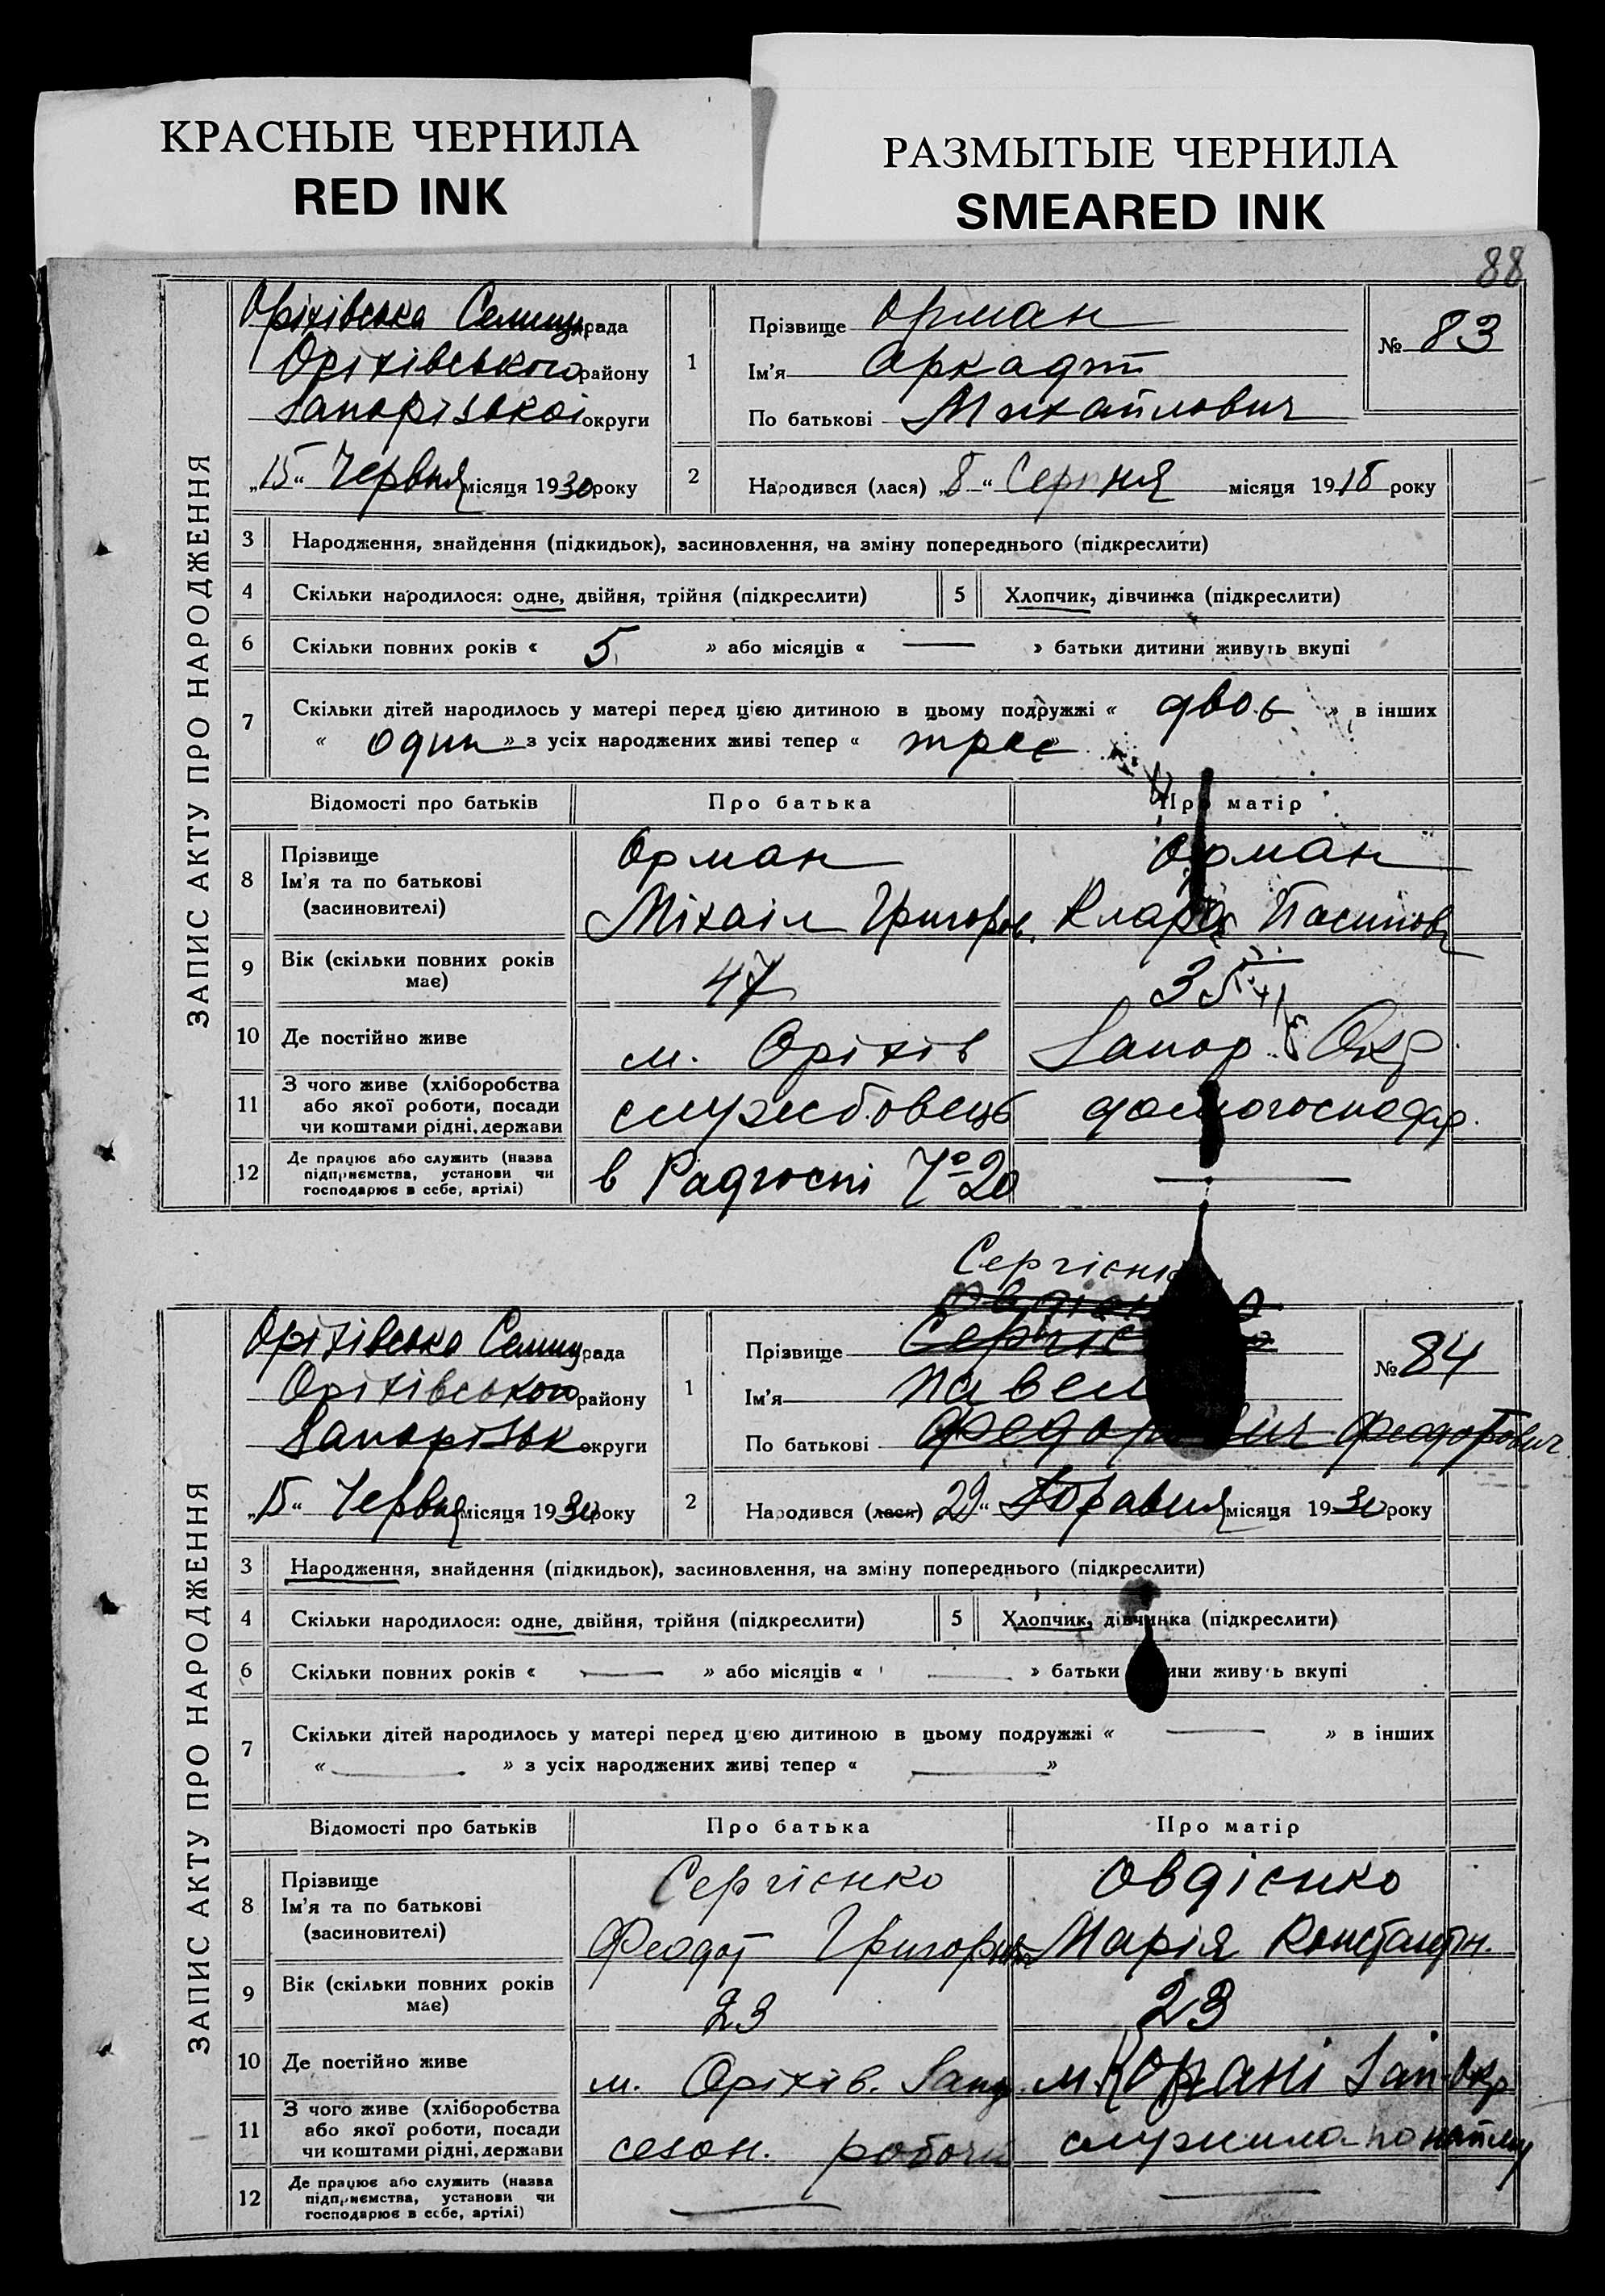 КРАСНЫЕ ЧЕРНИЛА
RED INK
РАЗМЫТЫЕ ЧЕРНИЛА
SMEARED INK
88
ЗАПИС АКТУ ПРО НАРОДЖЕННЯ
Оріхівська Селищн рада
Оріхівського району
Запорізької округи
„15“ Червня місяця 1930 року
1
Прізвище Орман
Ім'я Аркадій
По батькові Михайлович
№ 83
2 Народився (лася) „8“ Серпня місяця 1918 року
3 Народження, знайдення (підкидьок), засиновлення, на зміну попереднього (підкреслити)
4 Скільки народилося: одне, двійня, трійня (підкреслити) 5 Хлопчик, дівчинка (підкреслити)
6 Скільки повних років « 5 » або місяців « — » батьки дитини живуть вкупі
7 Скільки дітей народилось у матері перед цією дитиною в цьому подружжі « двоє » в інших
« один » з усіх народжених живі тепер « троє »
Відомості про батьків Про батька Про матір
8 Прізвище Ім'я та по батькові (засиновителі)
Орман Орман
Міхаіл Григоров. Клара
9 Вік (скільки повних років має) 47 35
10 Де постійно живе м. Оріхів Запор. Окр.
11 З чого живе (хліборобства або якої роботи, посади чи коштами рідні, держави службовець домогосподар.
12 Де працює або служить (назва підприємства, установи чи господарює в себе, артілі) в Радгоспі № 20 —
ЗАПИС АКТУ ПРО НАРОДЖЕННЯ
Оріхівська Селищ рада
Оріхівського району
Запорізьк округи
„15“ Червня місяця 1930 року
Сергієн
1
Прізвище
Ім'я Павел
По батькові Федорович Феодорович
№ 84
2 Народився (лася) 29“ Травня місяця 1930 року
3 Народження, знайдення (підкидьок), засиновлення, на зміну попереднього (підкреслити)
4 Скільки народилося: одне, двійня, трійня (підкреслити) 5 Хлопчик, дівчинка (підкреслити)
6 Скільки повних років « — » або місяців « — » батьки ини живуть вкупі
7 Скільки дітей народилось у матері перед цією дитиною в цьому подружжі « — » в інших
« — » з усіх народжених живі тепер « — »
Відомості про батьків Про батька Про матір
8 Прізвище Ім'я та по батькові (засиновителі)
Сергієнко Овдієнко
Феодот Григоров Марія Константин.
9 Вік (скільки повних років має) 23 23
10 Де постійно живе м. Оріхів. Зап. Окр
11 З чого живе (хліборобства або якої роботи, посади чи коштами рідні, держави сезон. робочий служила по найму
12 Де працює або служить (назва підприємства, установи чи господарює в себе, артілі) — —